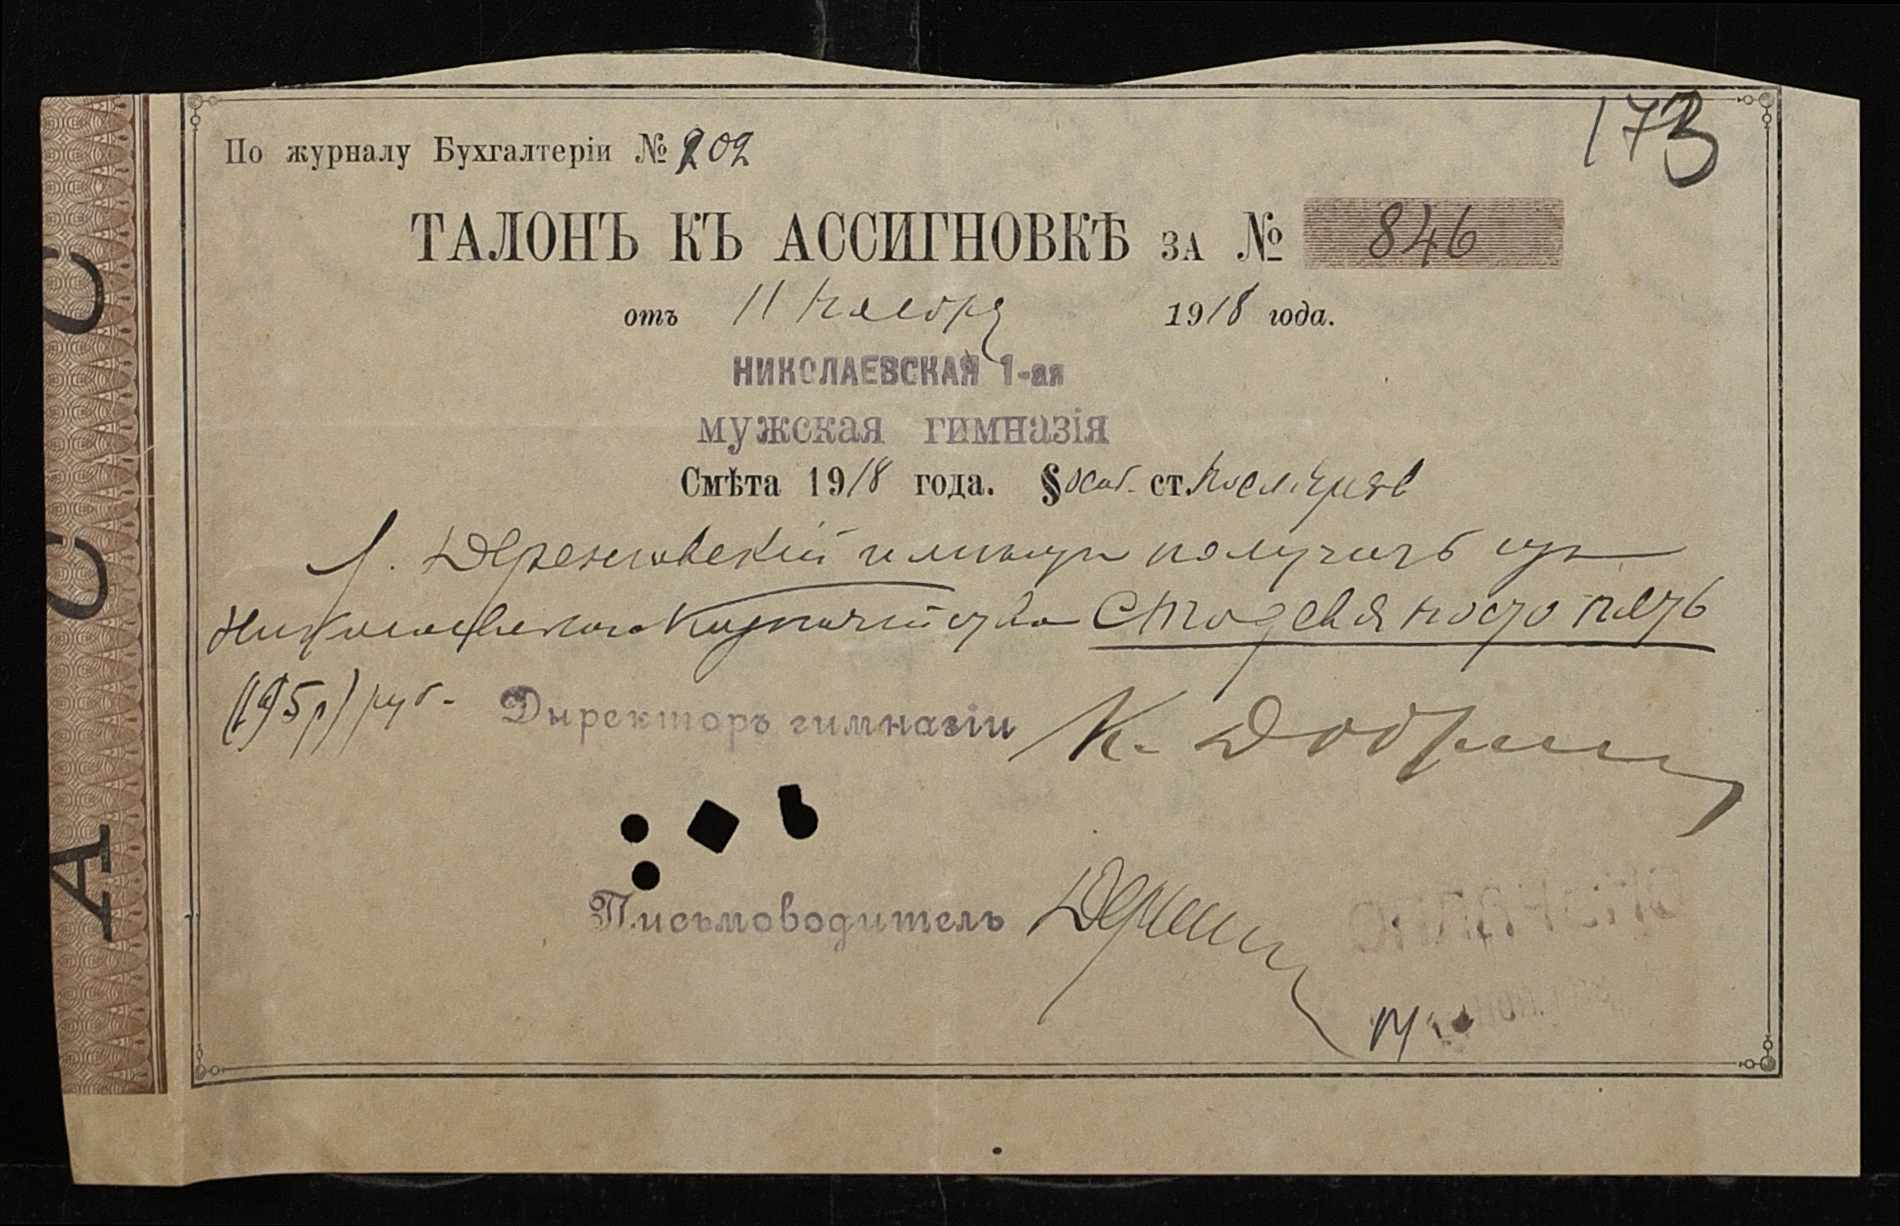 173
По журналу Бухгалтеріи № 202
ТАЛОНЪ КЪ АССИГНОВКѢ ЗА № 846
отъ 11 Ноября 1918 года.
НИКОЛАЕВСКАЯ 1-ая
мужская гимназія
Смѣта 1918 года. § ст.
получить изъ
Николаевскаго Казначейства Сто девяносто пять
(195 р) руб.
Директоръ гимназіи К. Добр
Письмоводитель
А С С